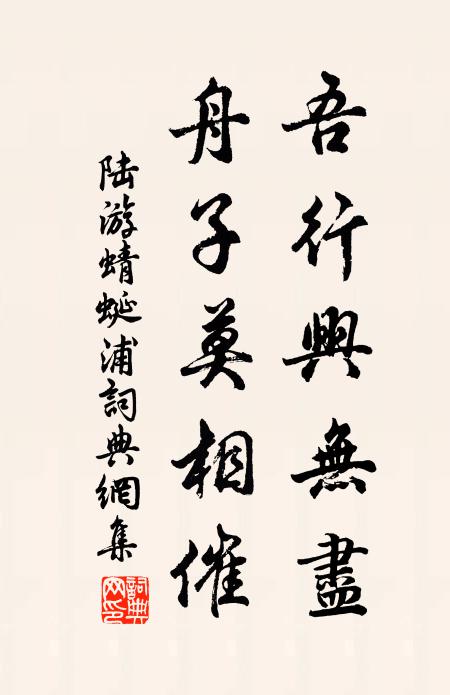 吾行興無盡
舟子莫相催
陆游蜻蜓浦詞典網集
詞典
网印